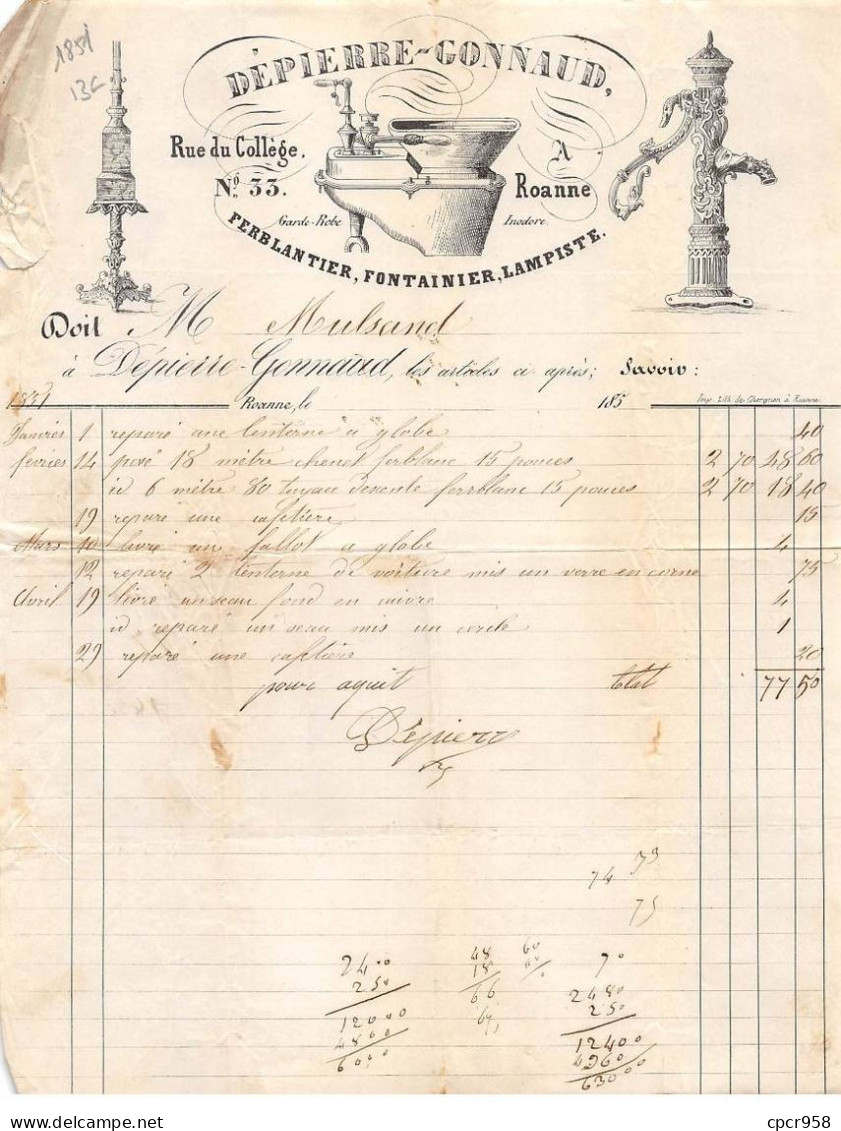 1851
13c
DÉPIERRE-GONNAUD,
Rue du Collège. A
No. 33. Roanne
Garde-Robe Inodore.
FERBLANTIER, FONTAINIER, LAMPISTE.
Doit M Mulsand
à Dépierre-Gonnaud, les articles ci après; Savoir:
1851 Roanne, le 185 Imp. Lith. de Chorgnon à Roanne
Janvier 1 reparé une lenterne a globe 40
fevrier 14 posé 18 mètre chenet ferblanc 15 pouces 2 70 48 60
id 6 mètre 80 tuyau desente ferrblanc 15 pouces 2 70 18 40
19 reparé une cafetiere 15
Mars 10 livré un fallot a globe 4
12 reparé 2 lenterne de voiture mis un verre en corne 75
Avril 19 livré un seau fond en cuivre 4
id reparé un seau mis un cercle 1
29 reparé une cafetière 20
pour aquit total 77 50
Dépierre
74 75
75
24 00 48 60 70
250 18 2480
66 250
12000 67 12400
4800 4960
6000 63000
cpcr958